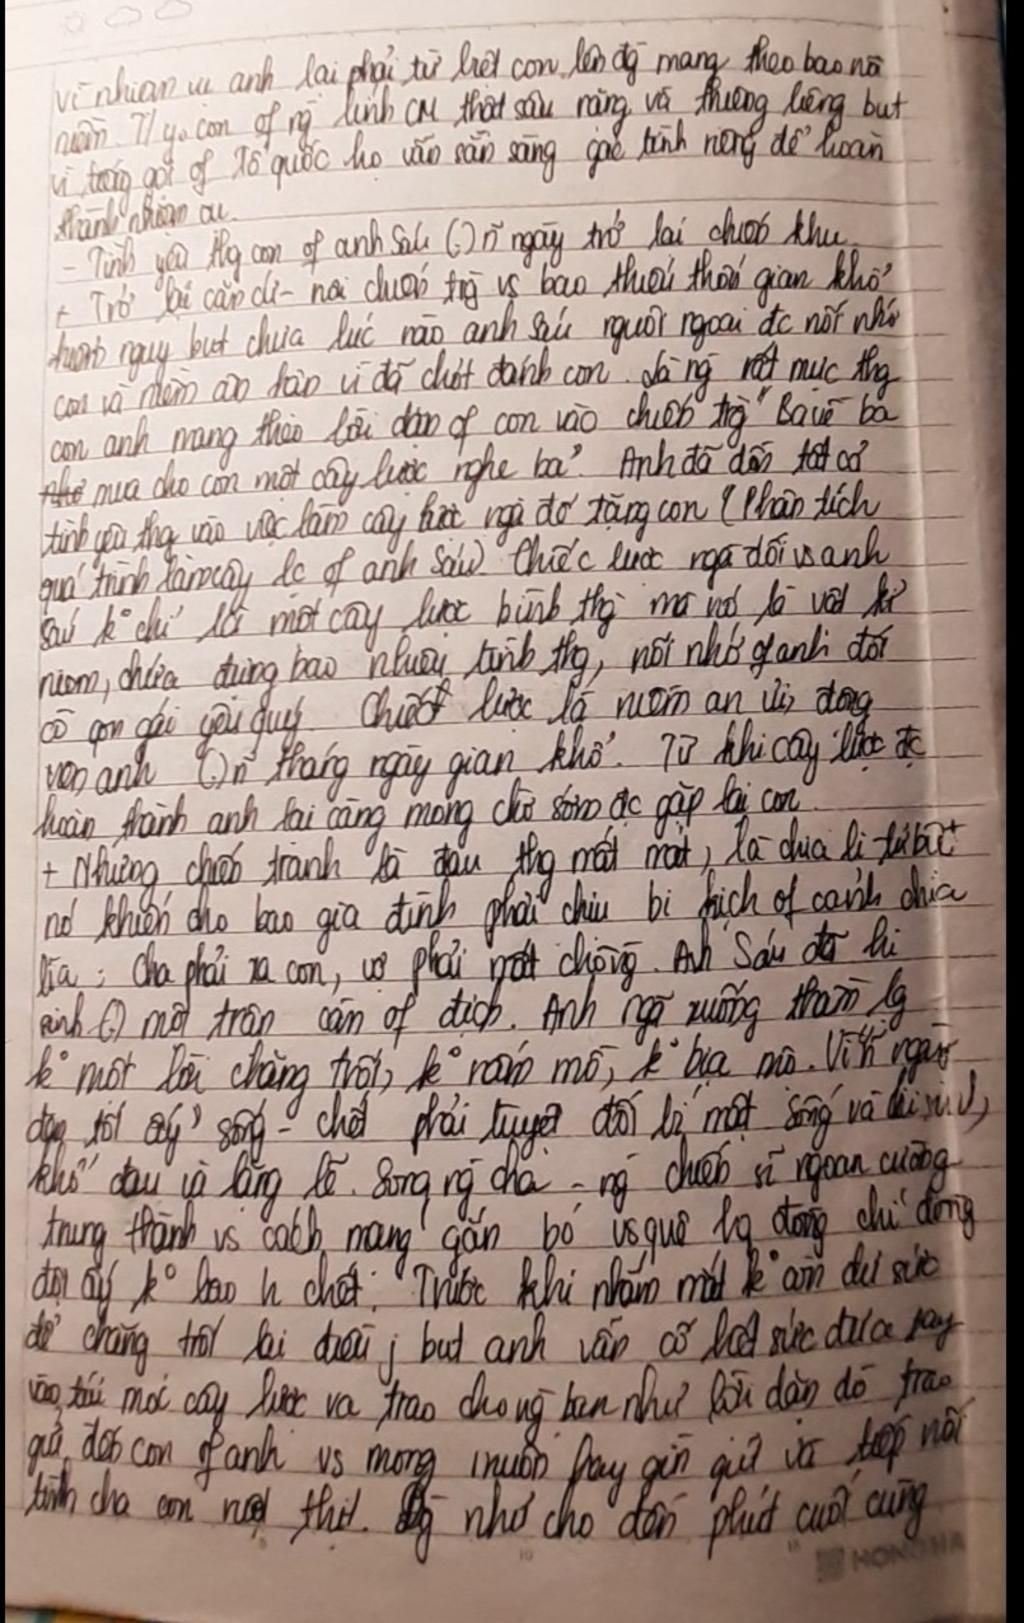 vì nhiệm vụ anh lại phải từ biệt con, lên đg mang theo bao nỗi
niềm. T/y con of ng lính CM thật sâu nặng và thiêng liêng but
vì tiếng gọi of Tổ quốc họ vẫn sẵn sàng gác tình riêng để hoàn
thành nhiệm vụ.
- Tình yêu thg con of anh Sáu (:) n~ ngày trở lại chiến khu
+ Trở lại căn cứ - nơi chiến trg vs bao thiếu thốn gian khổ
nguy but chưa lúc nào anh Sáu nguôi ngoai đc nỗi nhớ
con và niềm ân hận vì đã chót đánh con. Là ng rất mực thg
con anh mang theo lời dặn of con vào chiến trg "Ba về ba
mua cho con một cây lược nghe ba". Anh đã dồn tất cả
tình yêu thg vào việc làm cây lược ngà để tặng con (Phân tích
quá trình làm cây lc of anh Sáu) Chiếc lược ngà đối vs anh
Sáu k° chỉ là một cây lược bình thg mà nó là vật kỉ
niệm, chứa đựng bao nhiêu tình thg, nỗi nhớ of anh đối
cô con gái yêu quý. Chiếc lược là niềm an ủi, động
viên anh (:) n~ tháng ngày gian khổ. Từ khi cây lược đc
hoàn thành anh lại càng mong chờ sớm đc gặp lại con.
+ Nhưng chiến tranh là đau thg mất mát, là chia li từ biệt
nó khiến cho bao gia đình phải chịu bi kịch of cảnh chia
lìa; Cha phải xa con, vợ phải mất chồng. Anh Sáu đã hi
sinh (:) một trận càn of địch. Anh ngã xuống thầm lg
k° một lời chăng trối, k° nấm mồ, k° bia mộ. Vì n~ ngày
đen tối ấy" sống - chết phải tuyệt đối bí mật sống và hi sinh,
khổ đau và lặng lẽ. Song ng cha - ng chiến sĩ ngoan cường
trung thành vs cách mạng gắn bó vs quê hg đồng chí đồng
đội ấy k° bao h chết. Trước khi nhắm mắt k° còn đủ sức
để chăng trối lại điều j but anh vẫn cố hết sức đưa tay
vào túi móc cây lược và trao cho ng bạn như lời dặn dò trao
gửi đến con of anh vs mong muốn hay gìn giữ và tiếp nối
tình cha con ruột thịt. nhơ cho đến phút cuối cùng
HONG HA